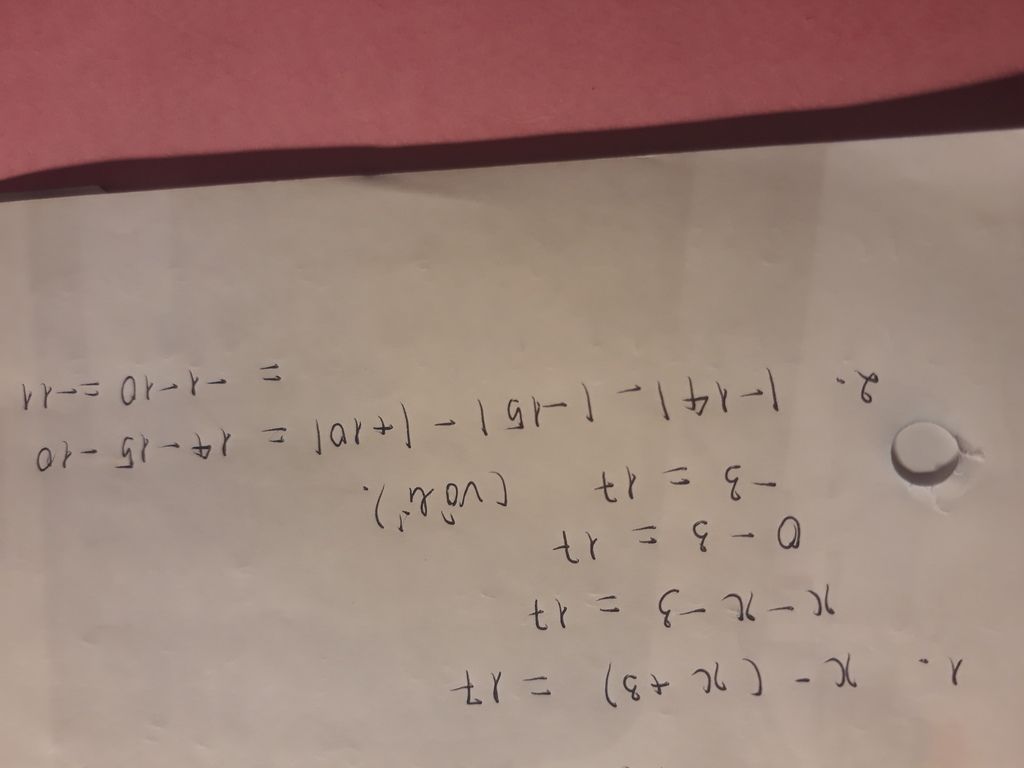 1. x - (x + 3) = 17
x - x - 3 = 17
0 - 3 = 17
- 3 = 17 (vô lí).
2. |-14| - |-15| - |+10| = 14 - 15 - 10
= -1 - 10 = -11